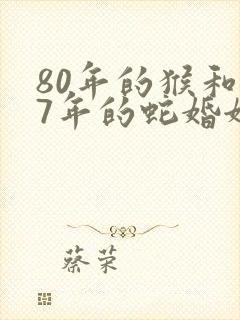 80年的猴和
7年的蛇婚
蔡荣